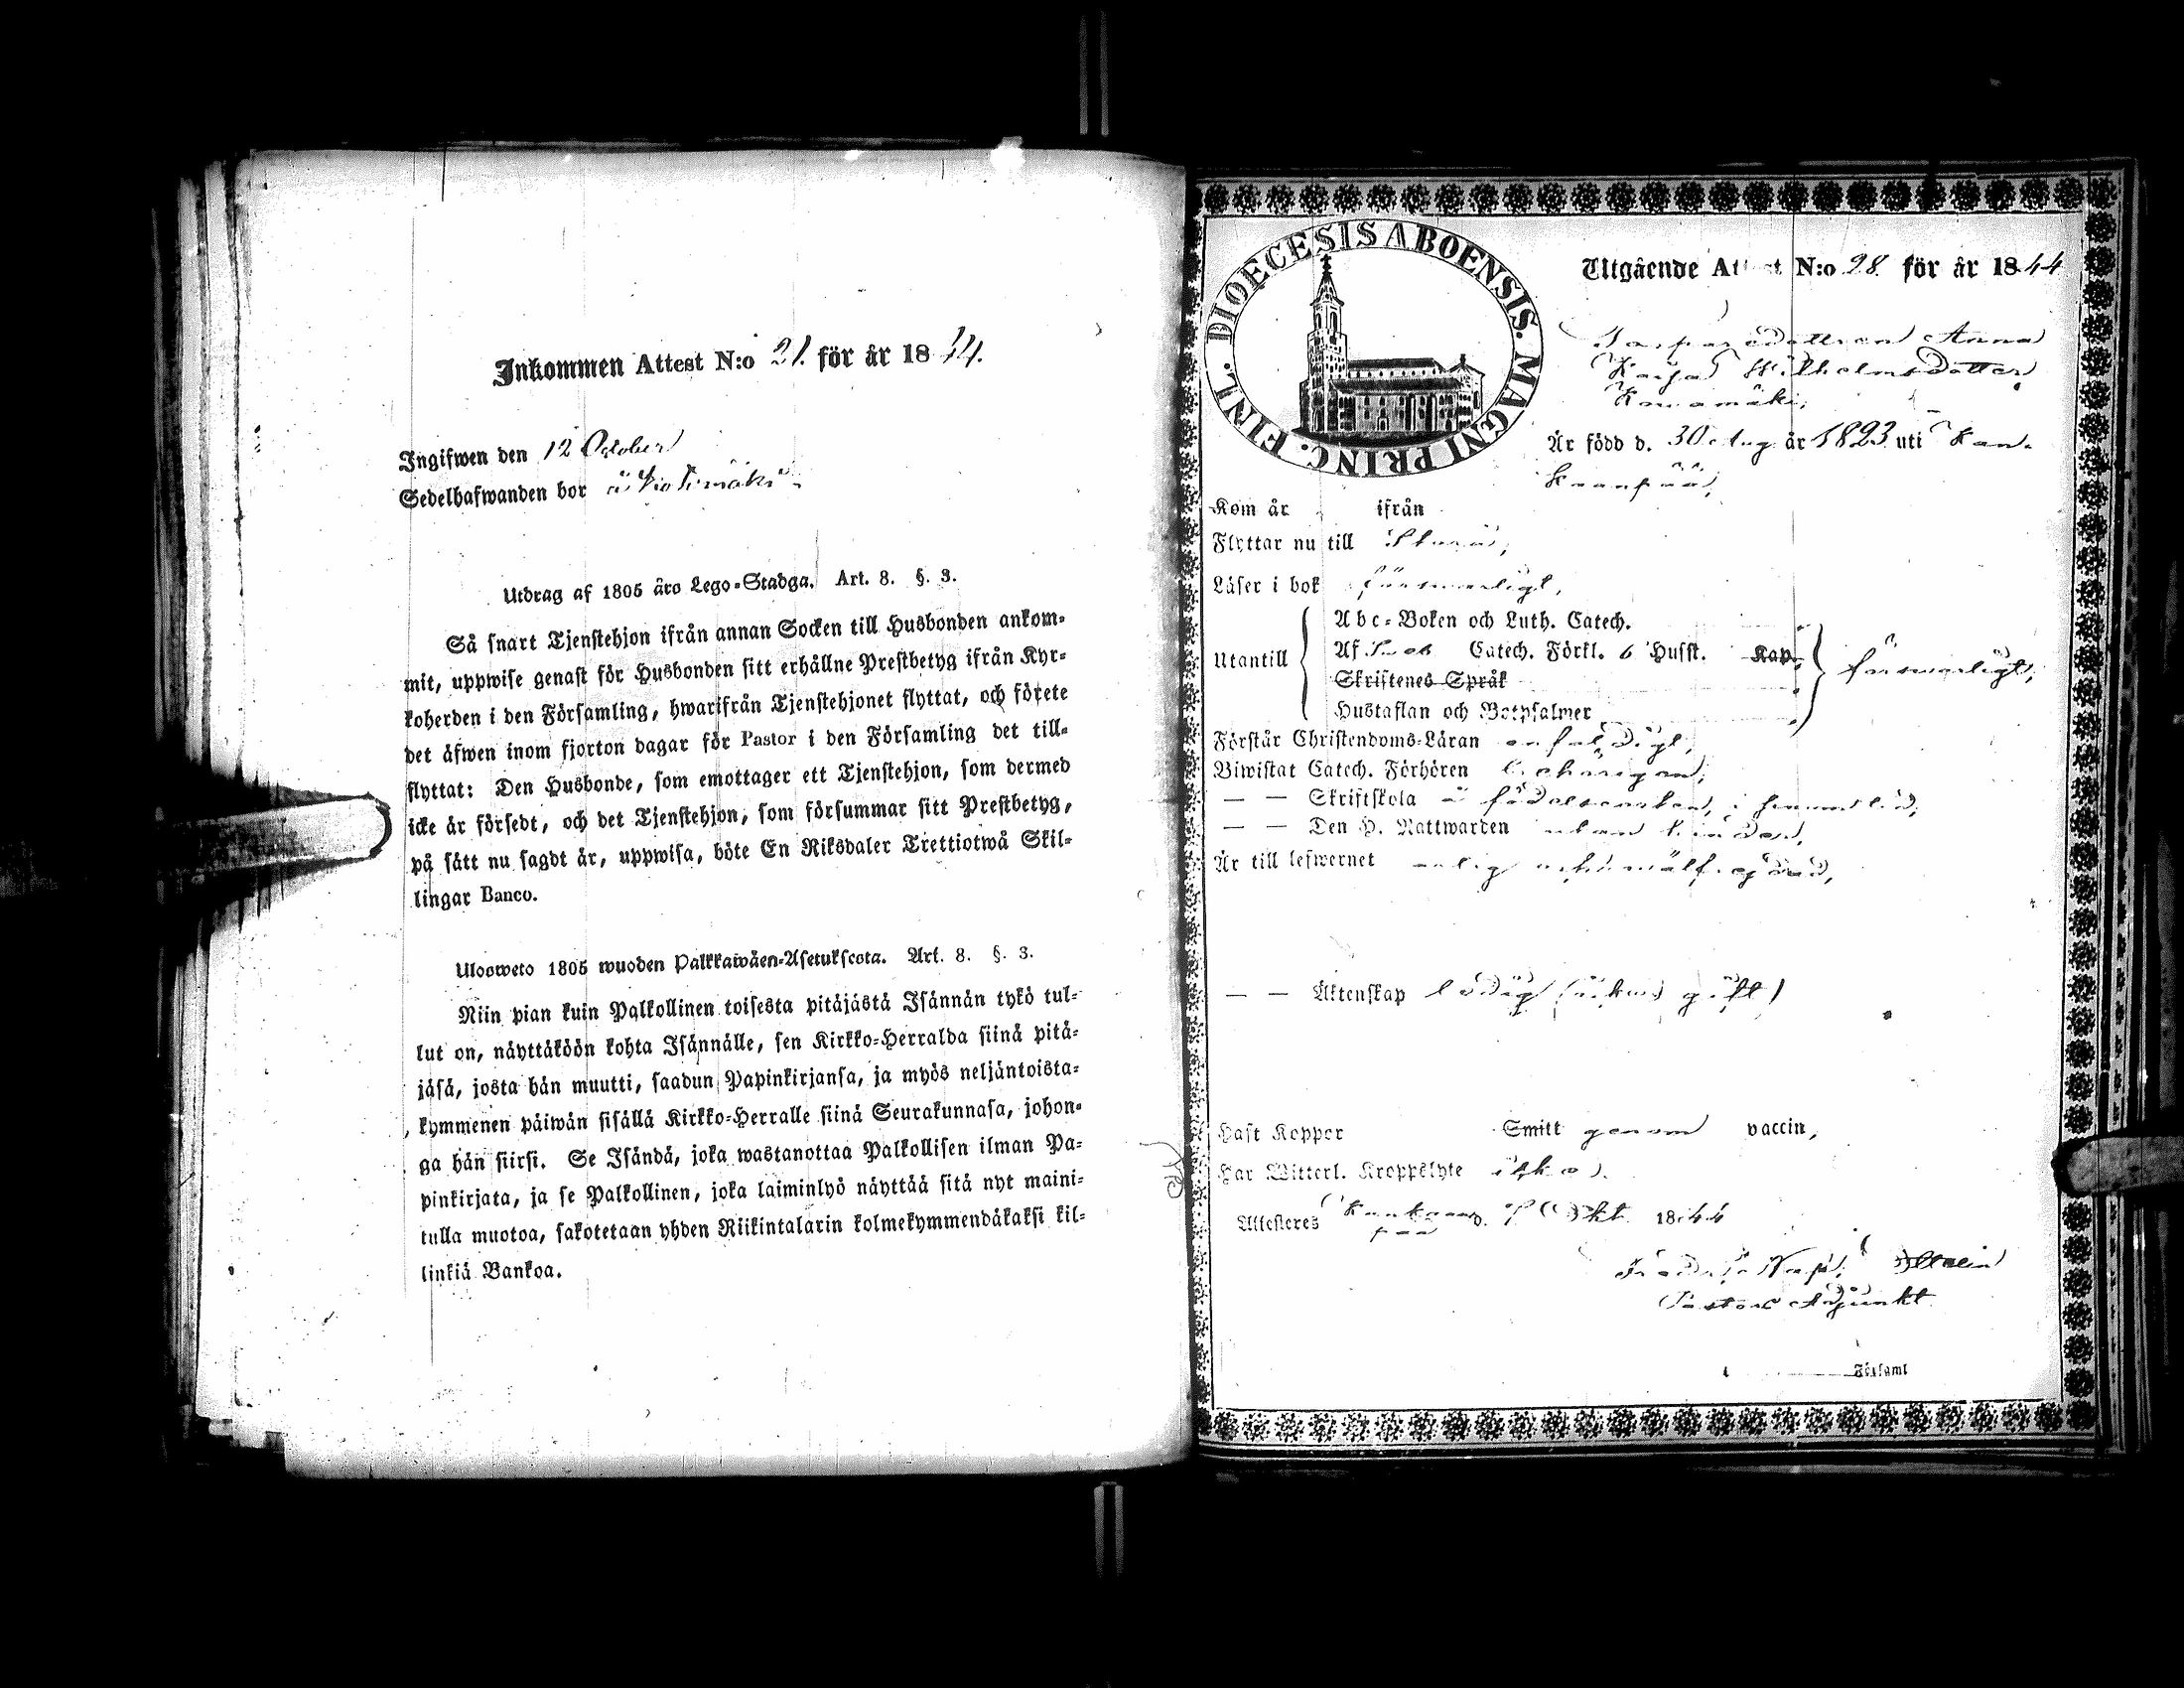 Inkommen Attest N:o 21. för år 1844.
Ingifwen den 12 October
Sedelhafwanden bor å
Utdrag af 1805 åro Lego-Stadga. Art. 8. §. 3.
Så snart Tjenstehjon ifrån annan Socken till Husbonden ankom-
mit, uppwise genast för Husbonden sitt erhållne Prestbetyg ifrån Kyr-
koherden i den Församling, hwarifrån Tjenstehjonet flyttat, och förete
det äfwen inom fjorton dagar för Pastor i den Församling det till-
flyttat: Den Husbonde, som emottager ett Tjenstehjon, som dermed
icke är försedt, och det Tjenstehjon, som försummar sitt Prestbetyg,
på sätt nu sagdt är, uppwisa, böte En Riksdaler Trettiotwå Skil-
lingar Banco.
Ulosweto 1805 wuoden Palkkawäen-Asetuksesta. Art. 8. §. 3.
Niin pian kuin Palkollinen toisesta pitäjästä Isännän tykö tul-
lut on, näyttäköön kohta Isännälle, sen Kirkko-Herralda siinä pitä-
jäsä, josta hän muutti, saadun Papinkirjansa, ja myös neljäntoista-
kymmenen päiwän sisällä Kirkko-Herralle siinä Seurakunnasa, johon-
ga hän siirsi. Se Isändä, joka wastanottaa Palkollisen ilman Pa-
pinkirjata, ja se Palkollinen, joka laiminlyö näyttää sitä nyt maini-
tulla muotoa, sakotetaan yhden Riikintalarin kolmekymmendäkaksi kil-
linkiä Bankoa.
DIOECESIS ABOENSIS. MAGNI PRINC. FINL.
Utgående Attest N:o 28. för år 1844
Anna
Kaisa Wilhelmsdotter
Är född d. 30 Aug. år 1823 uti Kan-
kaanpää,
Kom år ifrån
Flyttar nu till
Läser i bok försvarligt,
Utantill
Abc-Boken och Luth. Catech.
Af Catech. Förkl. 6 Husst. Kap.
Skriftenes Språk
Hustaflan och Botpsalmer
försvarligt;
Förstår Christendoms-Läran enfaldigt,
Biwistat Catech. Förhören behörigen,
— — Skriftskola å födelseorten,
— — Den H. Nattwarden utan hinder,
Är till lefwernet ärlig
— — Äktenskap ledig (icke gift)
Haft Koppor Smitt genom vaccin,
Har Witterl. Kroppslyte icke.
Attesteres Kankaan- d. Okt. 1844
pää
Pastors Adjunkt
Församl